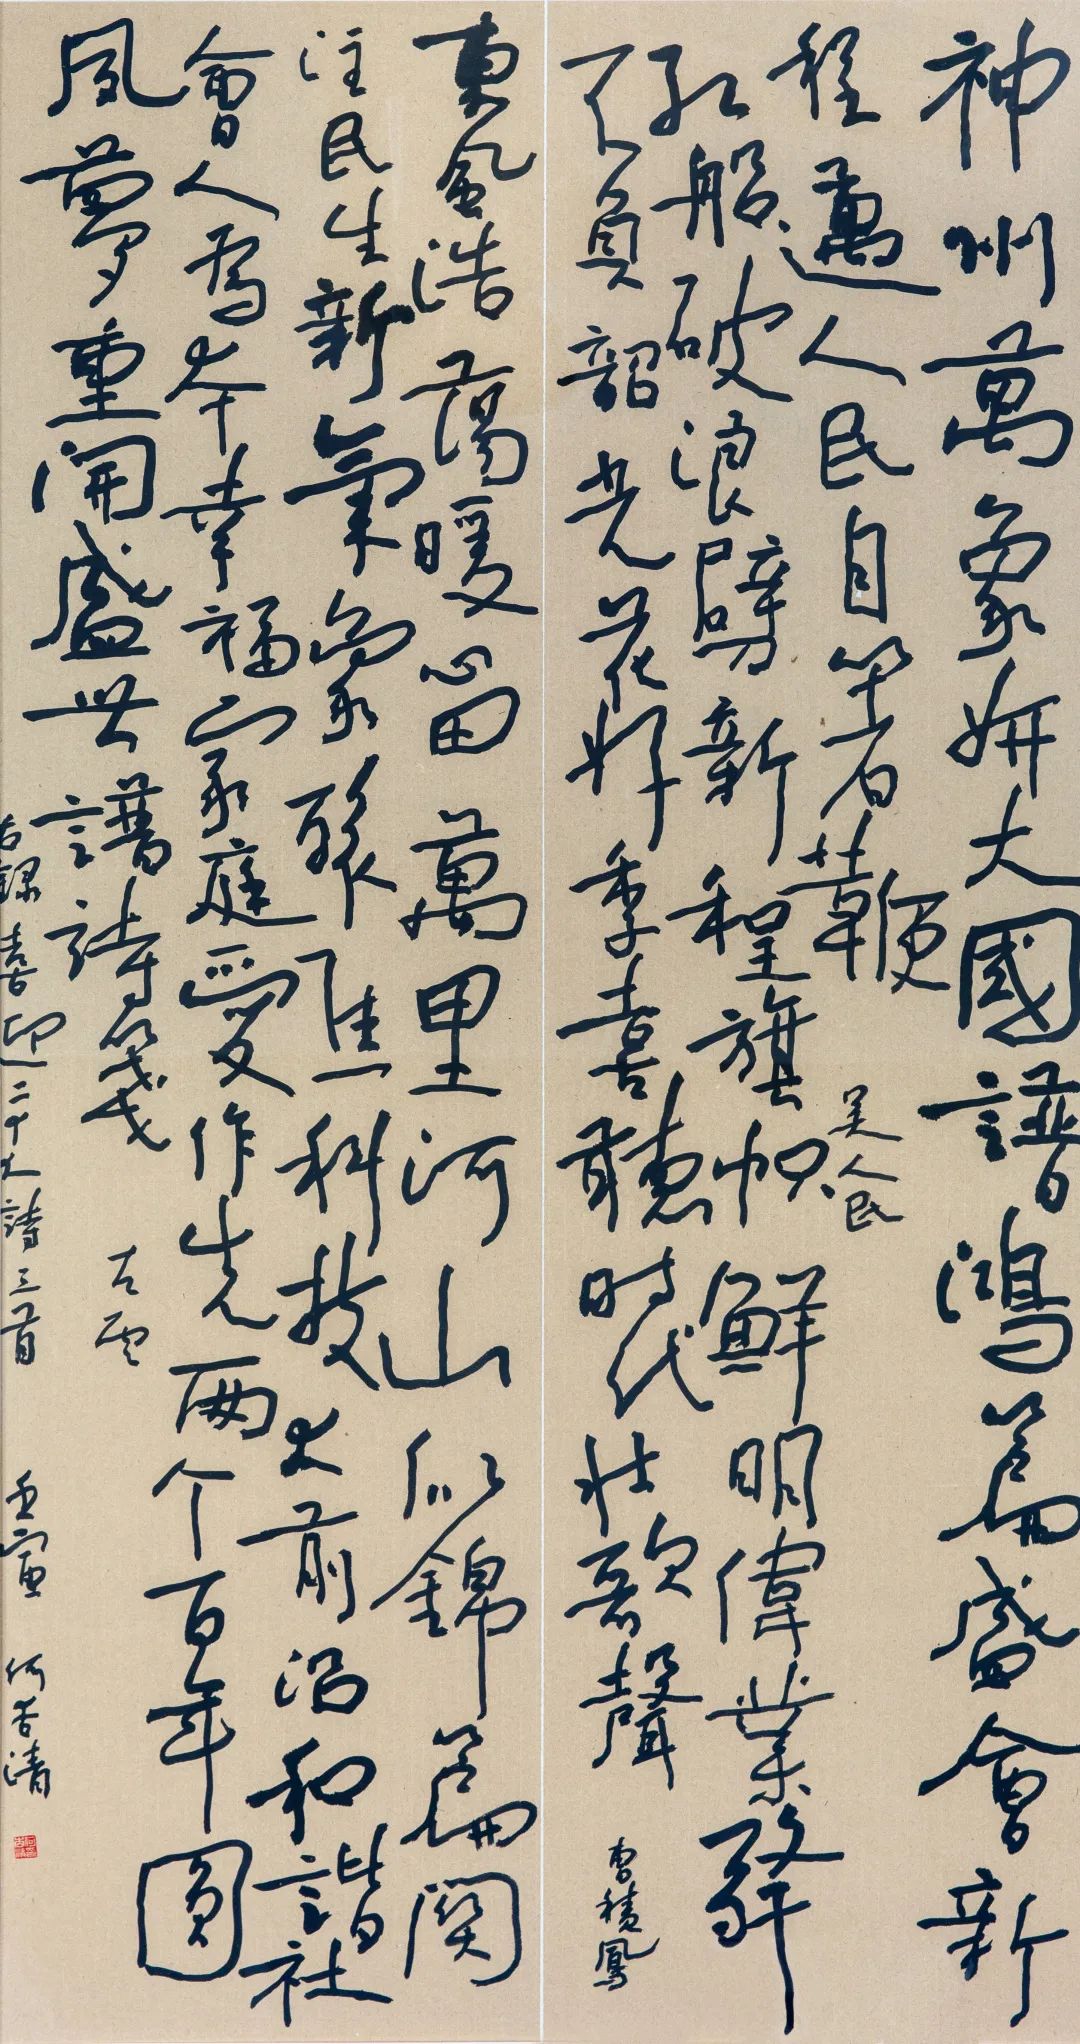 神州萬象妍大國譜鴻篇盛會新
程邁人民自箸鞭
吴人民
紅船破浪劈新程旗幟鮮明偉業
不負韶光花好季喜聽時代壯歌聲
曹積鳳
東風浩蕩暖心田萬里河山似錦篇関
注民生新氣象聚焦科技大前沿和諧社
會人為本幸福家庭愛作先兩个百年圓
夙夢重開盛世譜詩箋
古雲
右錄喜迎二十大詩三首 壬寅 何清